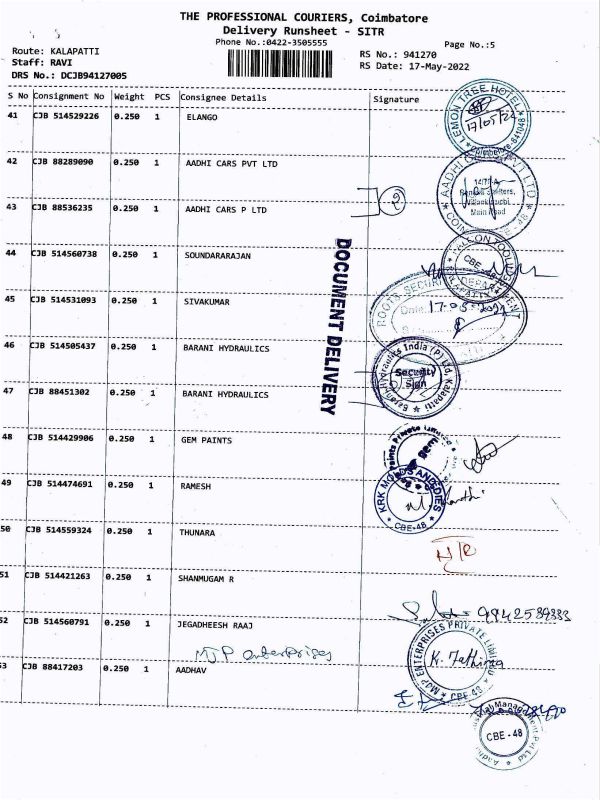 THE PROFESSIONAL COURIERS, Coimbatore
Delivery Runsheet - SITR
Phone No.:0422-3505555
Page No.:5
Route: KALAPATTI
Staff: RAVI
DRS No.: DCJB94127005
RS No.: 941270
RS Date: 17-May-2022
S No Consignment No Weight PCS Consignee Details Signature
41 CJB 514529226 0.250 1 ELANGO
LEMON TREE HOTEL
17/05/22
Coimbatore-641048
42 CJB 88289090 0.250 1 AADHI CARS PVT LTD
AADHI CARS PVT LTD
Main Road
43 CJB 88536235 0.250 1 AADHI CARS P LTD
2
44 CJB 514560738 0.250 1 SOUNDARARAJAN
CBE-48
45 CJB 514531093 0.250 1 SIVAKUMAR
ROOTS SECURITY DEPARTMENT
Date
DOCUMENT DELIVERY
46 CJB 514505437 0.250 1 BARANI HYDRAULICS
Barani Hydraulics India (P) Ltd, Kalapatti
Security
Sign
47 CJB 88451302 0.250 1 BARANI HYDRAULICS
48 CJB 514429906 0.250 1 GEM PAINTS
Gem Paints Private Limited
49 CJB 514474691 0.250 1 RAMESH
KRK MOULDS AND DIES
CBE-48
50 CJB 514559324 0.250 1 THUNARA
N/R
51 CJB 514421263 0.250 1 SHANMUGAM R
9942589883
52 CJB 514560791 0.250 1 JEGADHEESH RAAJ
MJP enterprises
MJP ENTERPRISES PRIVATE LIMITED
CBE-48
53 CJB 88417203 0.250 1 AADHAV
CBE - 48